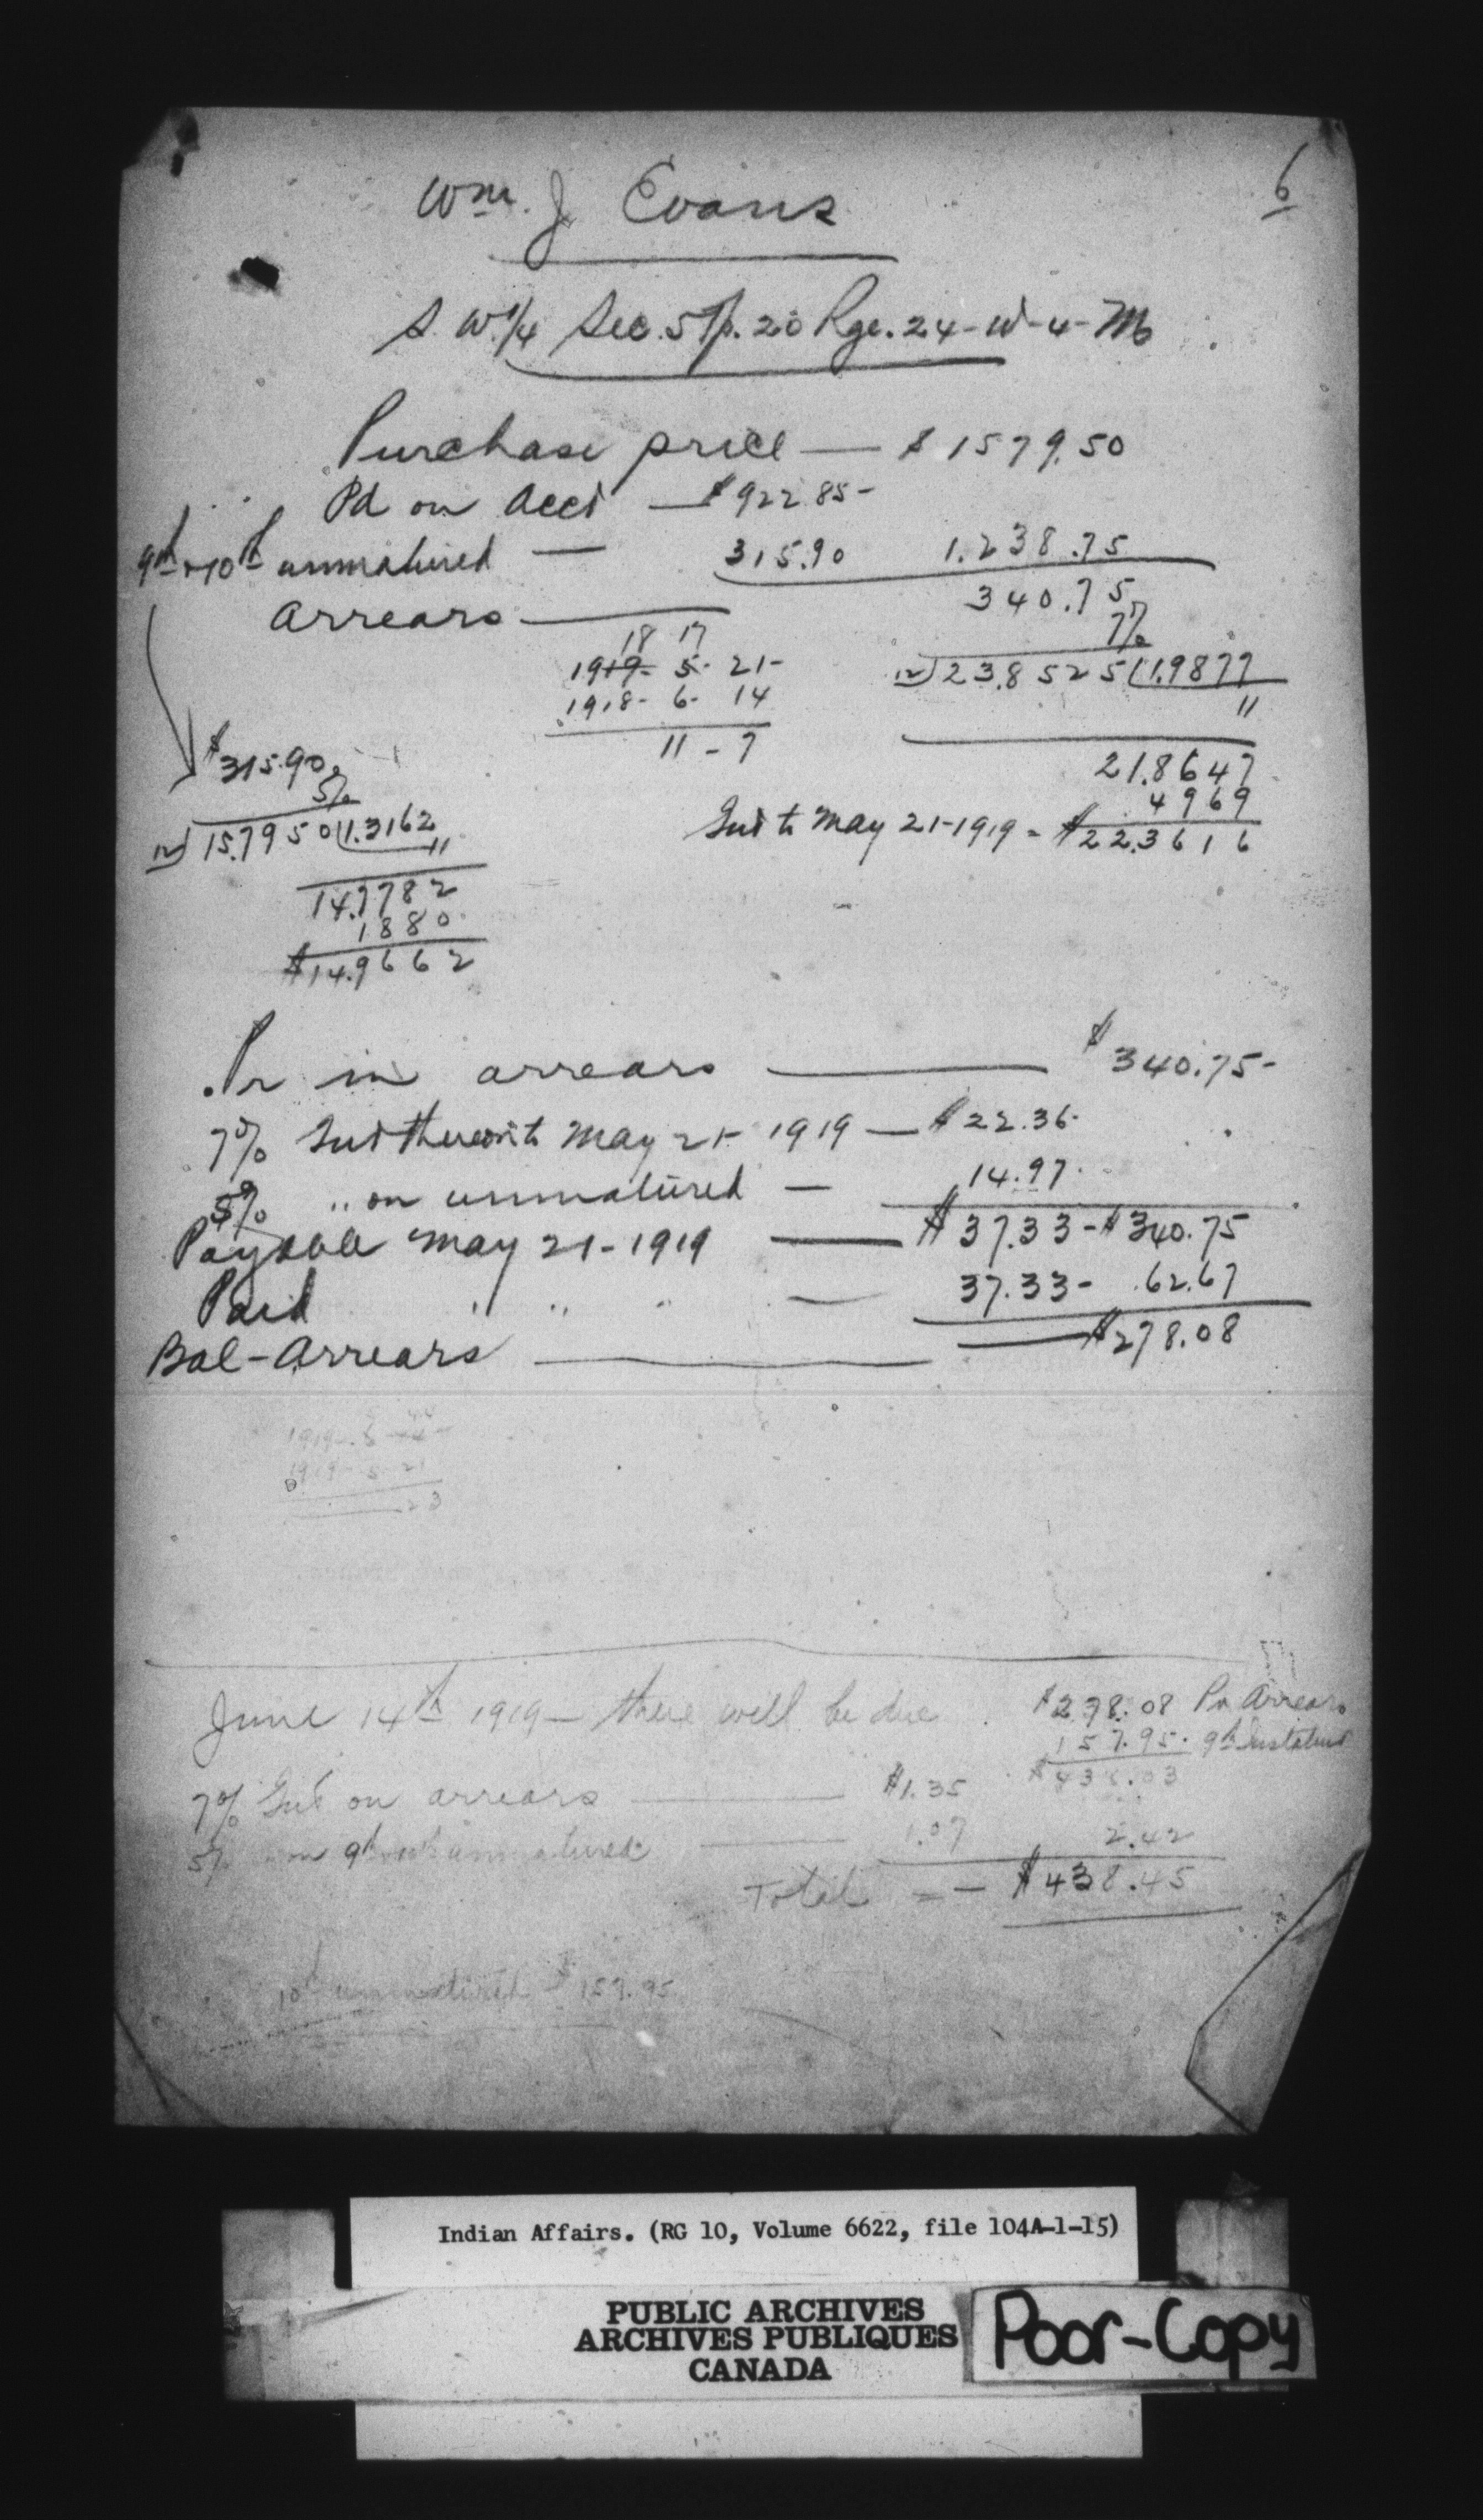 6
Wm. J Evans
S. W. 1/4 Sec. 5 Tp. 20 Rge. 24-W-4-M
Purchase price — $1579.50
Pd on Acct — $922.85-
9th & 10th unmatured — 315.90 1.238.75
Arrears — 340.75
7%
18 17
1919- 5- 21-
1918- 6- 14
11 - 7
12)23.8525(1.9877
11
21.8647
4969
Int to May 21-1919 - $22.3616
$315.90
5%
12)15.7950(1.3162
11
14.7782
1880
$14.9662
Pr in arrears — $340.75-
7% Int thereon to May 21- 1919 — $22.36-
5% " on unmatured — 14.97
Payable May 21-1919 — $37.33-$340.75
Paid " " " — 37.33- 62.67
Bal-Arrears — $278.08
1919- 5- 21
23
June 14th 1919— there will be due $278.08 Pr Arrears
157.95 9th Instalmt
$436.03
7% Int on arrears — $1.35
5% " on 9th unmatured — 1.07 2.42
Total — $438.45
10th unmatured $157.95
Indian Affairs. (RG 10, Volume 6622, file 104A-1-15)
PUBLIC ARCHIVES
ARCHIVES PUBLIQUES
CANADA
Poor-Copy